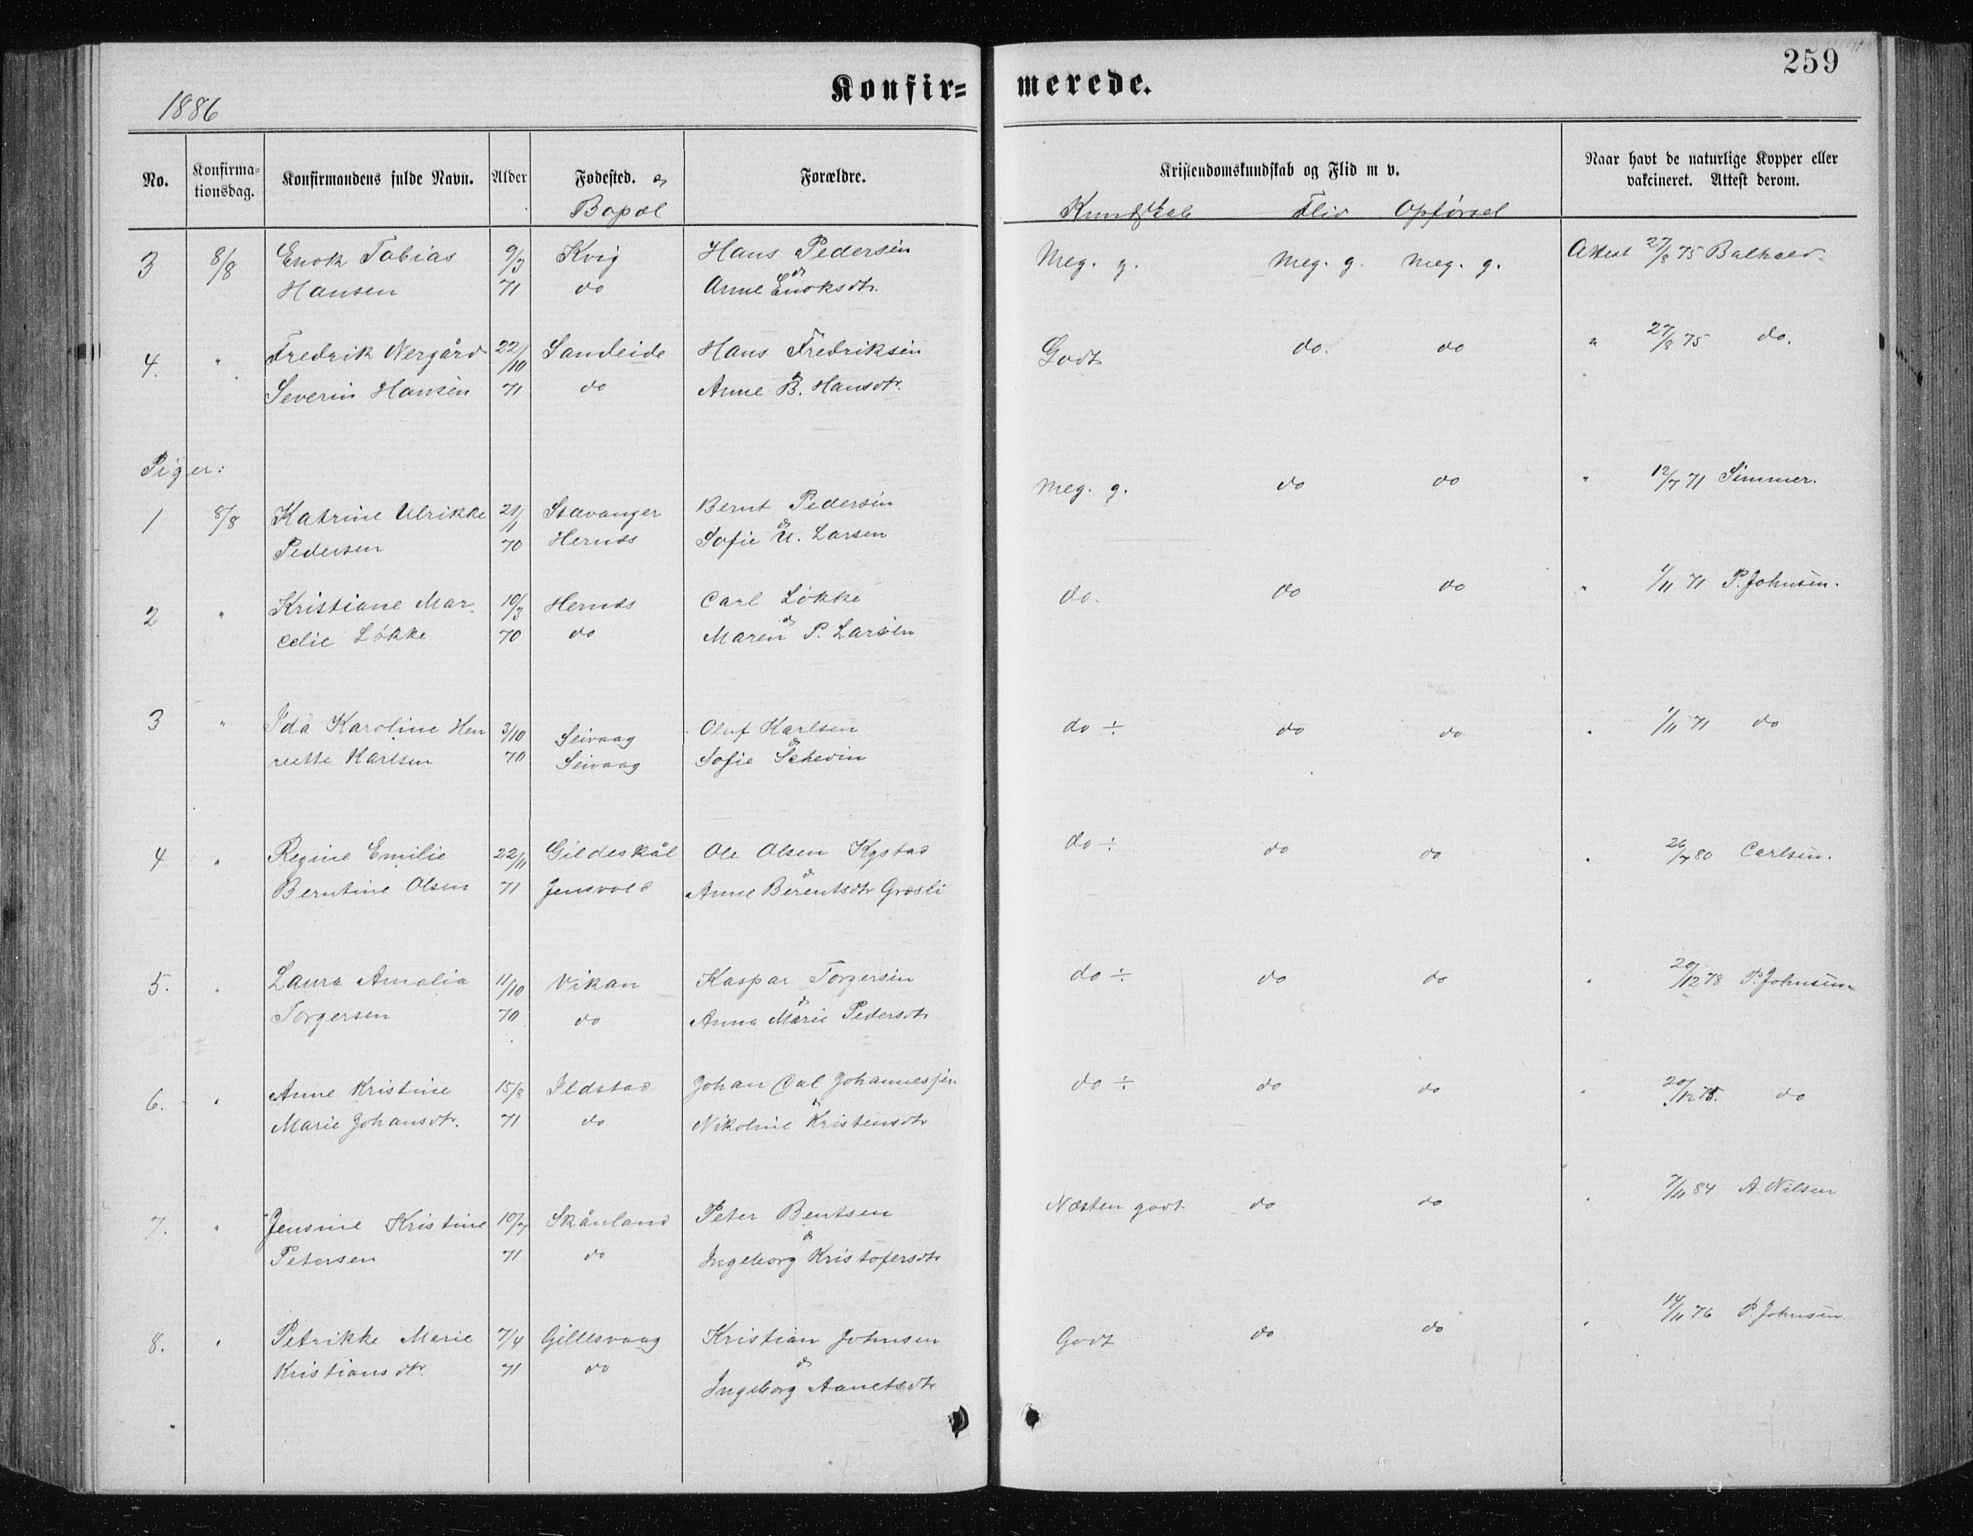 259
Konfir= merede.
1886
No. Konfirma-tionsdag. Konfirmandens fulde Navn. Alder Fødested. og Bopæl Forældre. Kristendomskundskab og Flid m v. Naar havt de naturlige Kopper eller vakcineret. Attest derom.
Kundskab Flid Opførsel
3 8/8 Enok Tobias 9/3 Kvig Hans Pedersen Meg. g. Meg. g. Meg. g. Attest 27/8 75
Hansen 71 do Anne Enoksdtr.
4. " Fredrik Nergård 22/10 Sandeide Hans Fredriksen Godt do. do " 27/8 75 do.
Severin Hansen 71 do Anne B. Hansdtr.
Piger:
1 8/8 Katrine Ulrikke 21/1 Stavanger Bernt Pedersen Meg. g. do do " 12/7 71 Simmer.
Pedersen 70 Hernes & Sofie U. Larsen
2 " Kristiane Mar- 10/3 Hernes Carl Løkke do. do do " 1/11 71 P. Johnsen.
celie Løkke 70 do & Maren P. Larsen
3 " Ida Karoline Hen 3/10 Seivaag Oluf Karlsen do ÷ do do " 1/11 71 do
riette Karlsen 70 Seivaag & Sofie Schevin
4 " Regine Emilie 22/11 Gildeskål Ole Olsen Kystad do ÷ do do " 26/7 80 Carlsen.
Berntine Olsen 71 Jensvold & Anne Berentsdtr Græsli
5. " Laura Amalia 11/10 Vikan Kaspar Torgersen do ÷ do do " 20/12 78 P. Johnsen
Torgersen 70 do & Anna Marie Pedersdtr
6. " Anne Kristine 15/8 Ildstad Johan Cal Johannessen do ÷ do do " 20/12 78. do
Marie Johansdtr. 71 do & Nikoline Kristensdtr
7. " Jensine Kristine 10/7 Skånland Peter Bentsen Næsten godt do do " 7/11 84 A. Nilsen
Petersen 71 do & Ingeborg Kristofersdtr
8. " Petrikke Marie 7/4 Gillesvaag Kristian Johnsen Godt do do " 14/11 76 P. Johnsen
Kristiansdtr. 71 do & Ingeborg Aanetsdtr